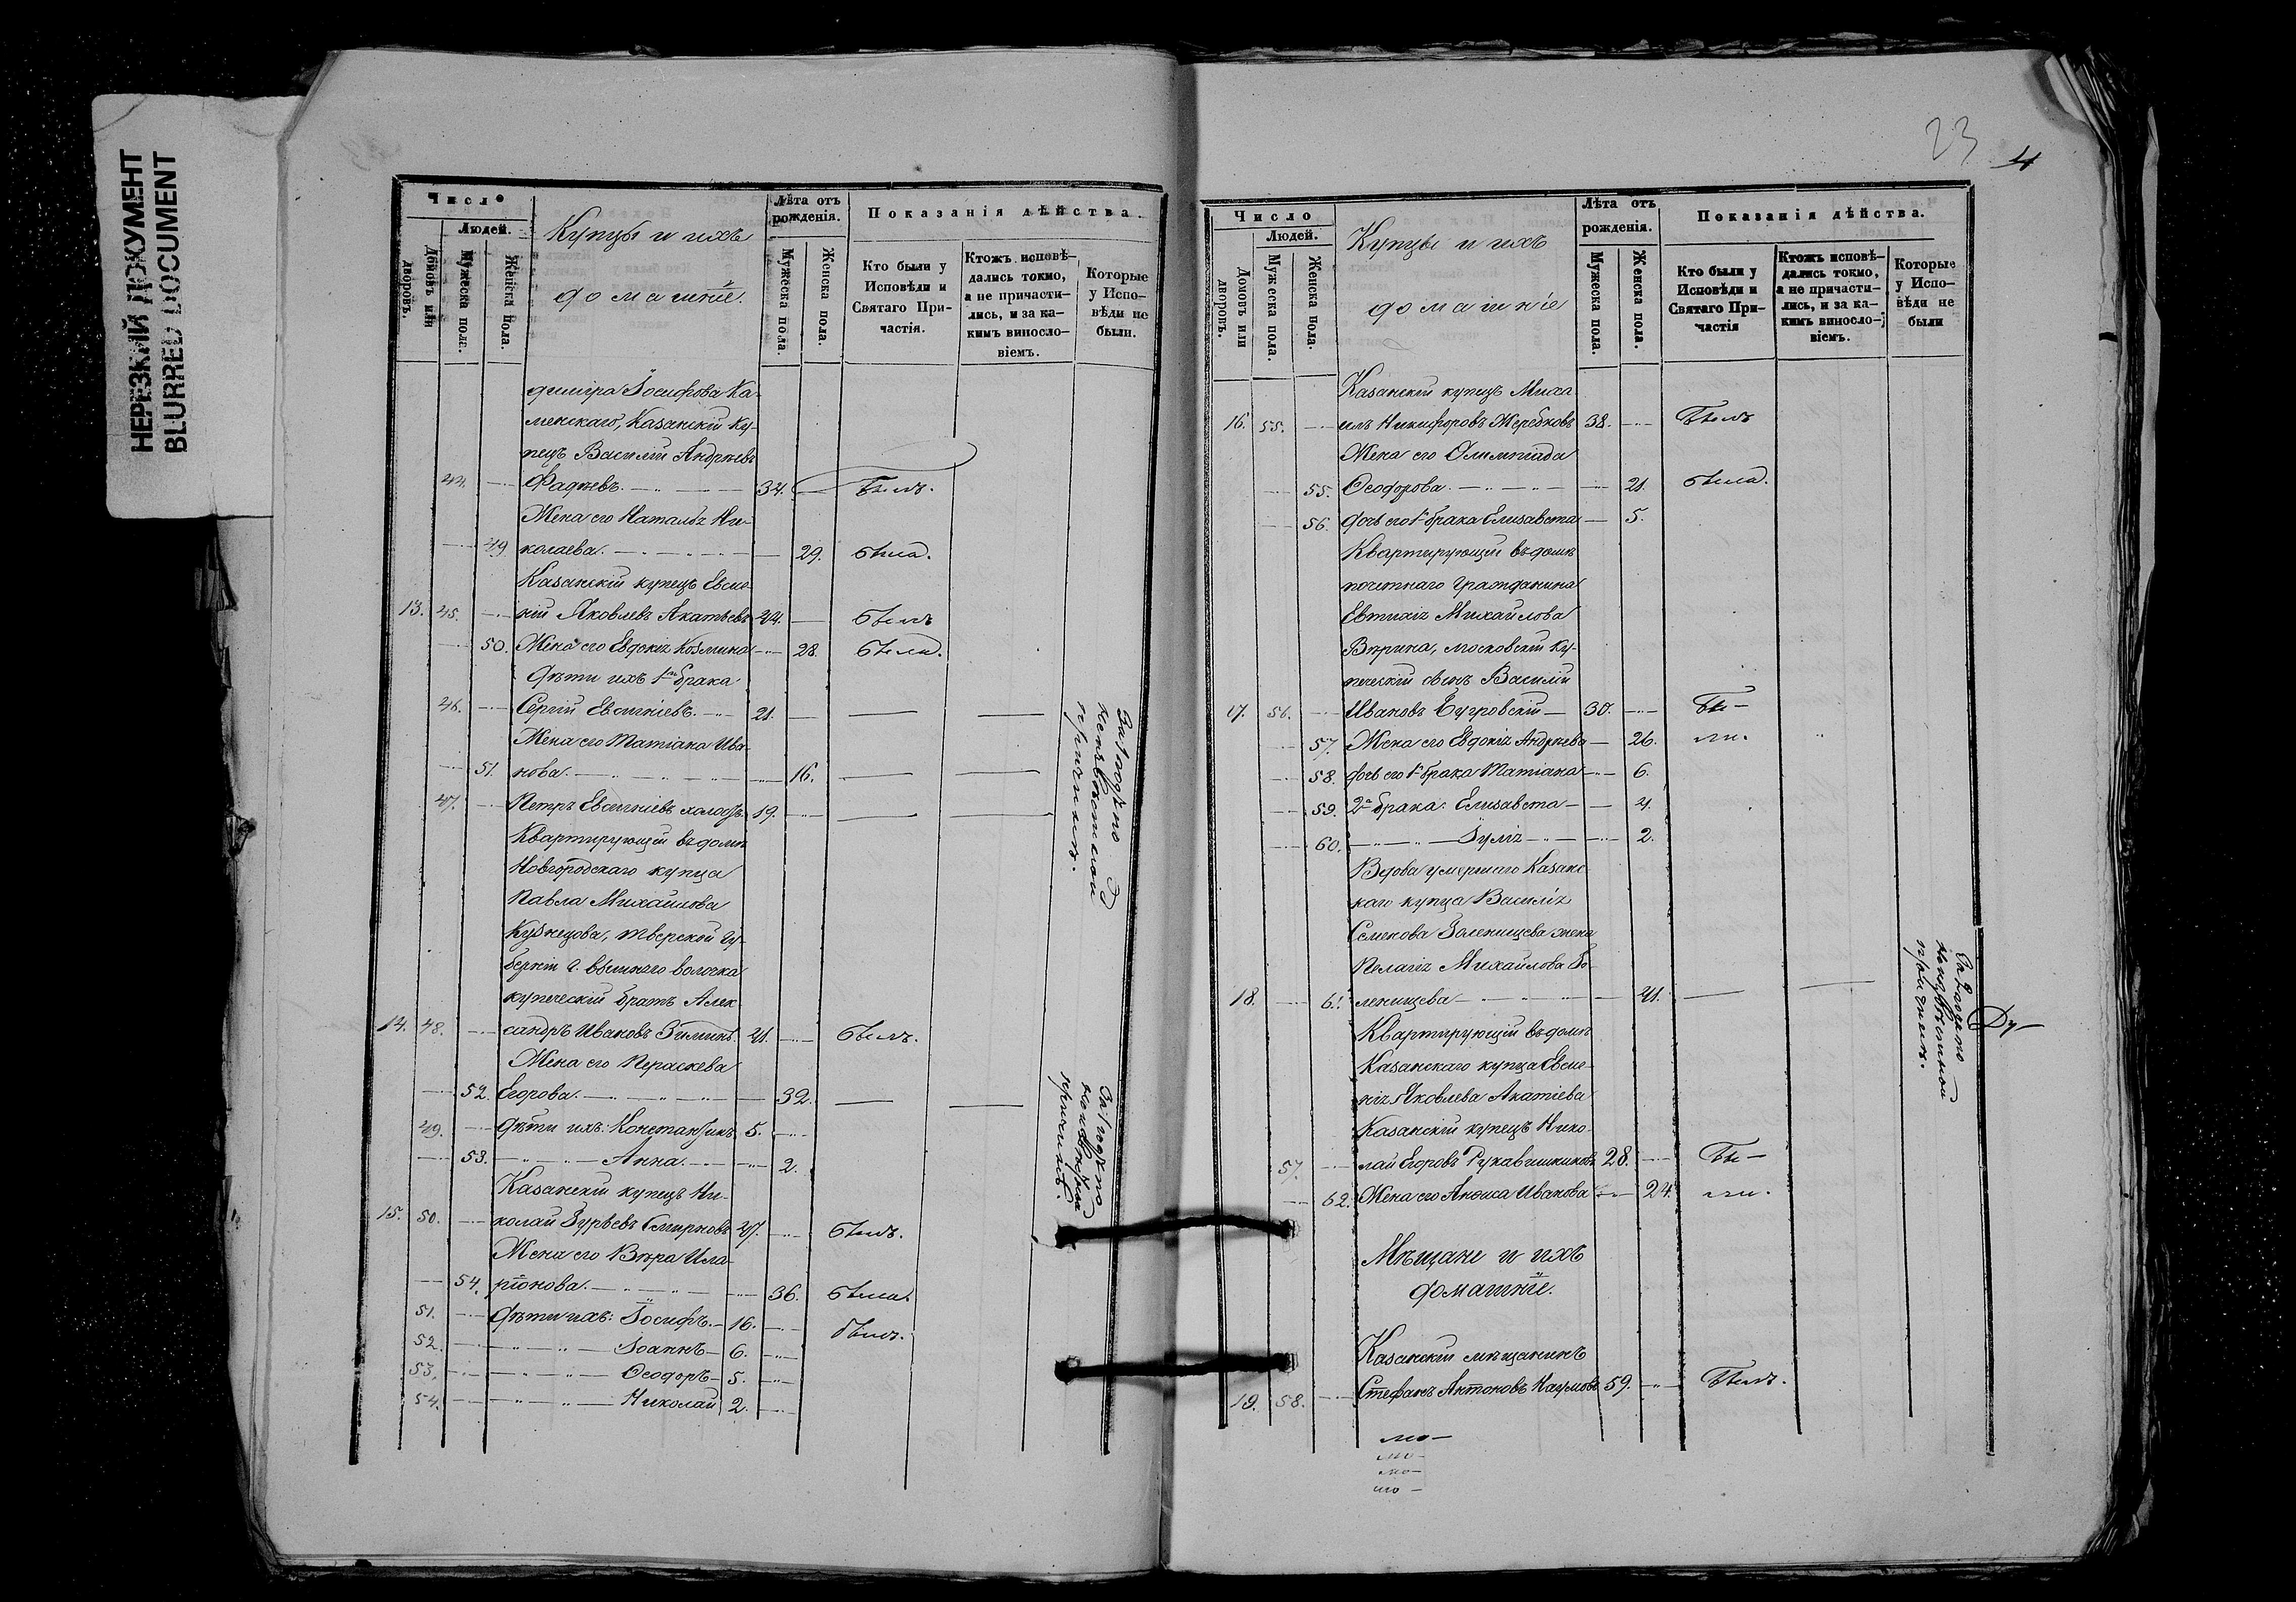 НЕРЕЗКИЙ ДОКУМЕНТ
BLURRED DOCUMENT
Число
Людей.
Домовъ или дворовъ.
Мужеска пола.
Женска пола.
Купцы и ихъ
домашнїе.
Лѣта отъ рожденія.
Мужеска пола.
Женска пола.
Показанія дѣйства.
Кто были у Исповѣди и Святаго Причастія.
Ктожъ исповѣдались токмо, а не причастились, и за какимъ винословіемъ.
Которые у Исповѣди не были.
димїра Іосифова Ка-
менскаго, Казанскій ку-
пецъ Василій Андрѣевъ
44. Фадѣевъ. 34. Былъ.
Жена его Наталья Ни-
49 колаева. 29. была.
Казанскій купецъ Евсиг-
13. 45. ній Яковлевъ Акатьевъ 44. былъ
50. Жена его Евдокія Козмина 28. была.
Дѣти ихъ 1го брака
46. Сергій Евсигніевъ. 21. — —
Жена его Татіана Ива-
51. нова. 16. — —
47. Петръ Евсигніевъ холостъ. 19. — —
Квартирующій въ домѣ
Новгородскаго купца
Павла Михайлова
Кузнецова, тверской гу-
берніи г. вышняго волочка
купеческій братъ Алек-
14. 48. сандръ Ивановъ Зиминъ. 41. былъ.
Жена его Параскева
52. Егорова. 32. — —
49. Дѣти ихъ: Константинъ 5.
53. Анна. 2.
Казанскій купецъ Ни-
15. 50. колай Зурьевъ Смирновъ 47. былъ.
Жена его Вѣра Ила-
54. ріонова. 36. была.
51. Дѣти ихъ: Іосифъ. 16. былъ.
52. Іоаннъ 6.
53. Ѳеодоръ 5.
54. Николай 2.
по
неизвѣстной
причинѣ.
по
причинѣ.
23
4
Число
Людей.
Домовъ или дворовъ.
Мужеска пола.
Женска пола.
Купцы и ихъ
домашніе
Лѣта отъ рожденія.
Мужеска пола.
Женска пола.
Показанія дѣйства.
Кто были у Исповѣди и Святаго Причастія
Ктожъ исповѣдались токмо, а не причастились, и за какимъ винословіемъ.
Которые у Исповѣди не были
Казанскій купецъ Миха
16. 55. илъ Никифоровъ Жеребковъ 38. Былъ
Жена его Олимпіада
55. Ѳеодорова. 21. была.
56. дочь его 1го брака Елизавета 5.
Квартирующій въ домѣ
почетнаго гражданина
Евтихія Михайлова
Вѣрина, московскій ку-
печескій сынъ Василій
17. 56. Ивановъ Бугровскій 30. Бы-
57. Жена его Евдокія Андрѣева 26. ли.
58. дочь его 1го брака Татіана 6.
59. 2го брака: Елизавета 4.
60. Іулія 2.
Вдова умершаго Казанс
каго купца Василія
Семенова Заленищева жена
Пелагія Михайлова За-
18. 61. ленищева 41. — —
Квартирующій въ домѣ
Казанскаго купца Евсиг-
нія Яковлева Акатіева
Казанскій купецъ Нико-
57. лай Егоровъ Рукавишниковъ 28. Бы-
62. Жена его Анѳиса Иванова 24. ли.
Мѣщане и ихъ
домашнїе.
Казанскій мѣщанинъ
19. 58. Стефанъ Антоновъ Наумовъ 59. Былъ.
по
неизвѣстной
причинѣ.
Ду-
мо-
мо-
мо-
мо-